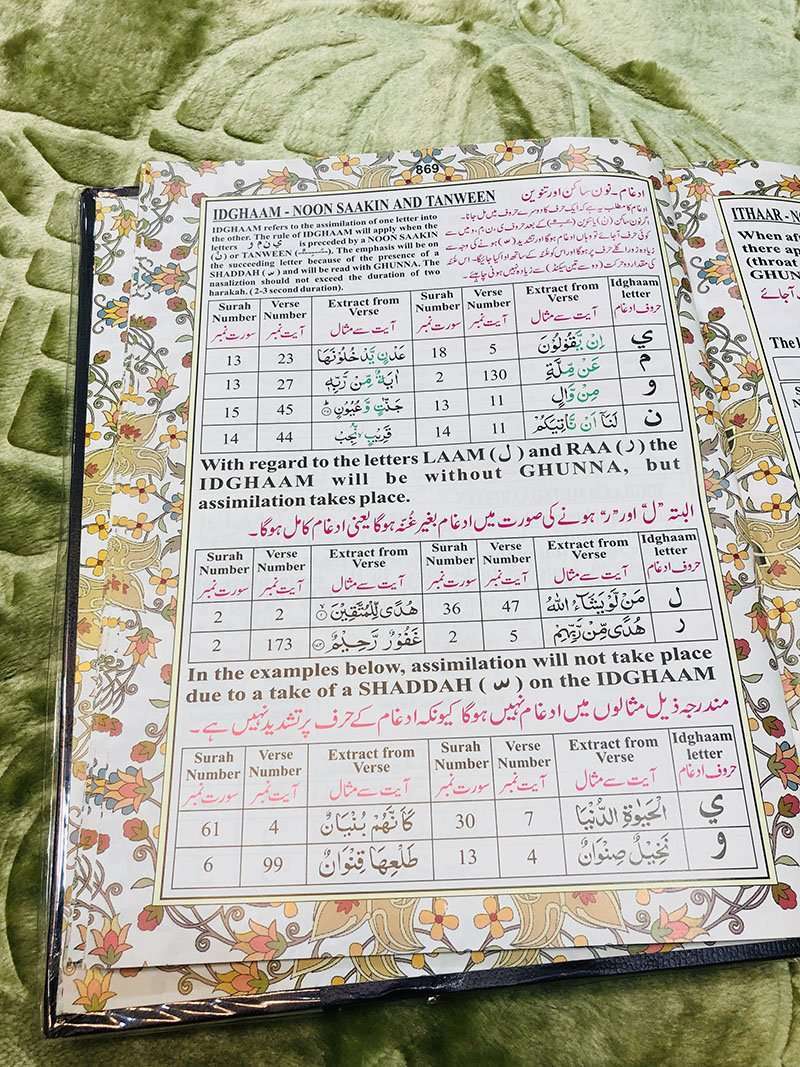 869
IDGHAAM - NOON SAAKIN AND TANWEEN
IDGHAAM refers to the assimilation of one letter into
the other. The rule of IDGHAAM will apply when the
letters ي ن م و is preceded by a NOON SAAKIN
(ن) or TANWEEN. The emphasis will be on
the succeeding letter because of the presence of a
SHADDAH (س) and will be read with GHUNNA. The
nasaliztion should not exceed the duration of two
harakah. (2-3 second duration).
ادغام۔ نون ساکن اور تنوین
ادغام کا مطلب ہے کہ ایک حرف کا دوسرے حروف میں مل جانا۔
Surah Number Verse Number Extract from Verse Surah Number Verse Number Extract from Verse Idghaam letter
سورت نمبر آیت نمبر آیت سے مثال سورت نمبر آیت نمبر آیت سے مثال حروف ادغام
13 23 عَدْنٍ يَّدْخُلُوْنَهَا 18 5 اِنْ يَّقُوْلُوْنَ ي
13 27 اٰيَةٌ مِّنْ رَّبِّهٖ 2 130 عَنْ مِّلَّةِ م
15 45 جَنّٰتٍ وَّعُيُوْنٍ 13 11 مِنْ وَّالٍ و
14 44 قَرِيْبٍ نُّجِبْ 14 11 لَنَآ اَنْ نَّاْتِيَكُمْ ن
With regard to the letters LAAM (ل) and RAA (ر) the
IDGHAAM will be without GHUNNA, but
assimilation takes place.
البتہ ”ل“ اور ”ر“ ہونے کی صورت میں ادغام بغیر غُنّہ ہوگا یعنی ادغام کامل ہوگا۔
Surah Number Verse Number Extract from Verse Surah Number Verse Number Extract from Verse Idghaam letter
سورت نمبر آیت نمبر آیت سے مثال سورت نمبر آیت نمبر آیت سے مثال حروف ادغام
2 2 هُدًى لِّلْمُتَّقِيْنَ 36 47 مَنْ لَّوْ يَشَآءُ اللّٰهُ ل
2 173 غَفُوْرٌ رَّحِيْمٌ 2 5 هُدًى مِّنْ رَّبِّهِمْ ر
In the examples below, assimilation will not take place
due to a take of a SHADDAH (س) on the IDGHAAM
مندرجہ ذیل مثالوں میں ادغام نہیں ہوگا کیونکہ ادغام کے حرف پر تشدید نہیں ہے۔
Surah Number Verse Number Extract from Verse Surah Number Verse Number Extract from Verse Idghaam letter
سورت نمبر آیت نمبر آیت سے مثال سورت نمبر آیت نمبر آیت سے مثال حروف ادغام
61 4 كَاَنَّهُمْ بُنْيَانٌ 30 7 الْحَيٰوةِ الدُّنْيَا ي
6 99 طَلْعِهَا قِنْوَانٌ 13 4 نَخِيْلٌ صِنْوَانٌ و
ITHAAR - N
When af
there ap
(throat
GHUN
The l